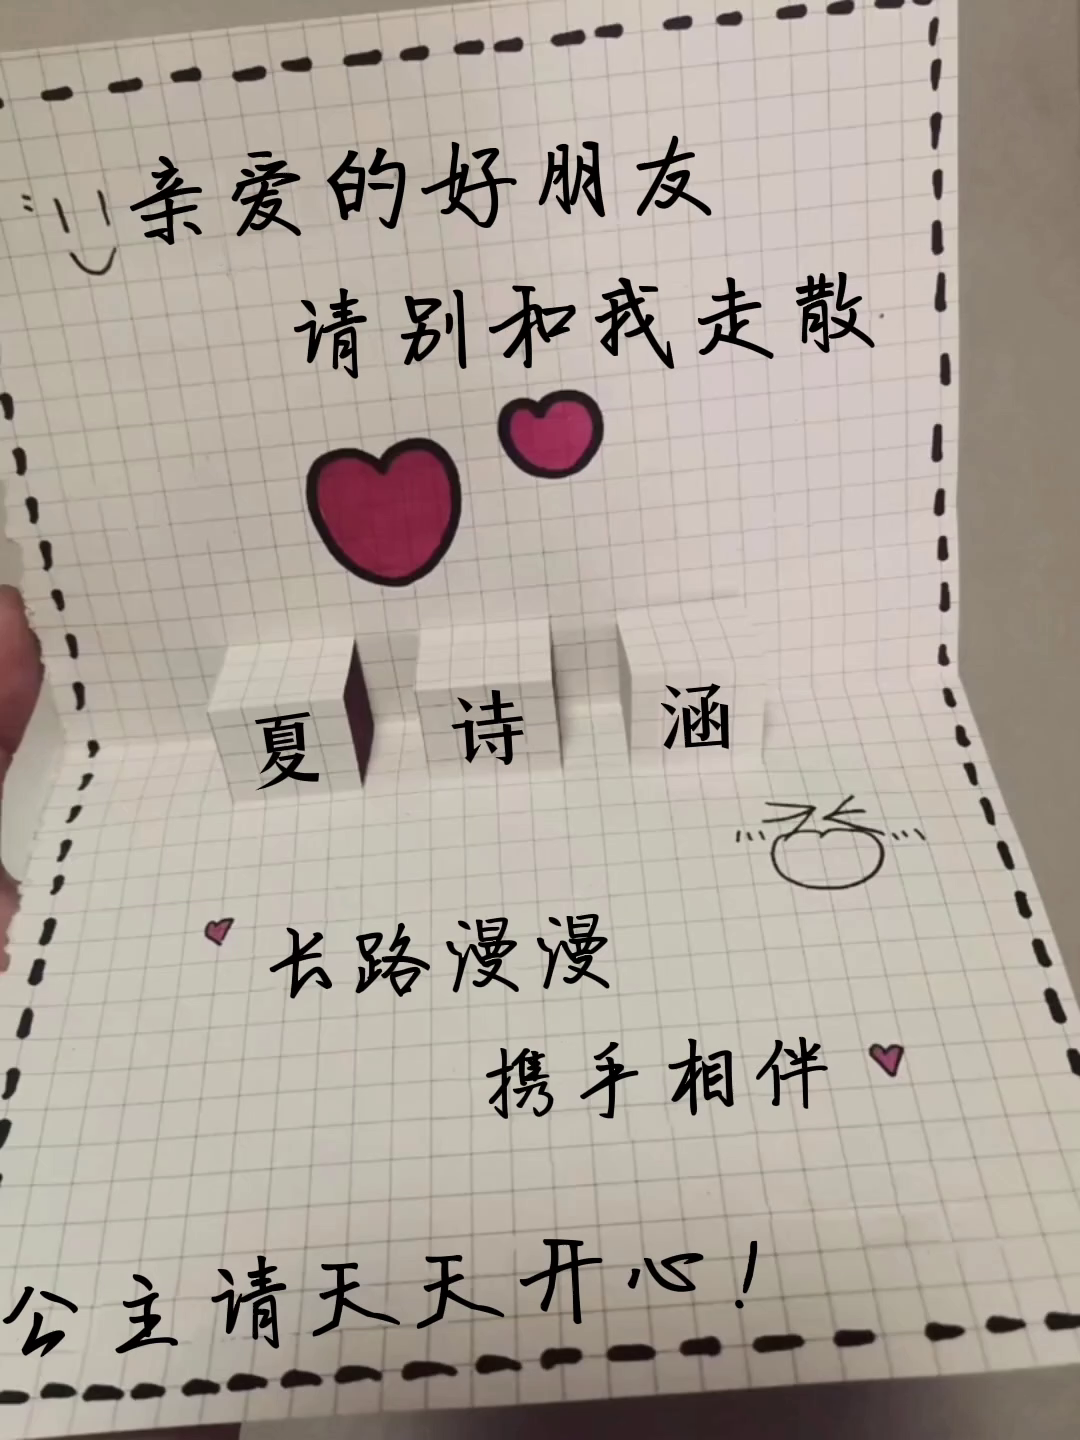 亲爱的好朋友
请别和我走散
夏诗涵
长路漫漫
携手相伴
公主请天天开心！